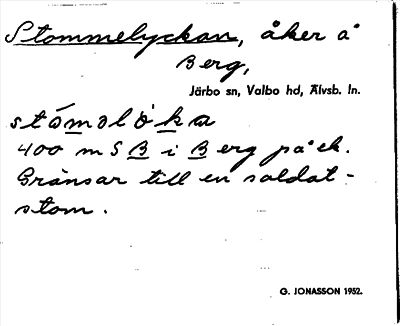 Stommelyckan, åker å
Berg,
Järbo sn, Valbo hd, Älvsb. ln.
stómǝlò̀ka
400 m S B i Berg på ek.
Gränsar till en soldat-
stom.
G. JONASSON 1952.